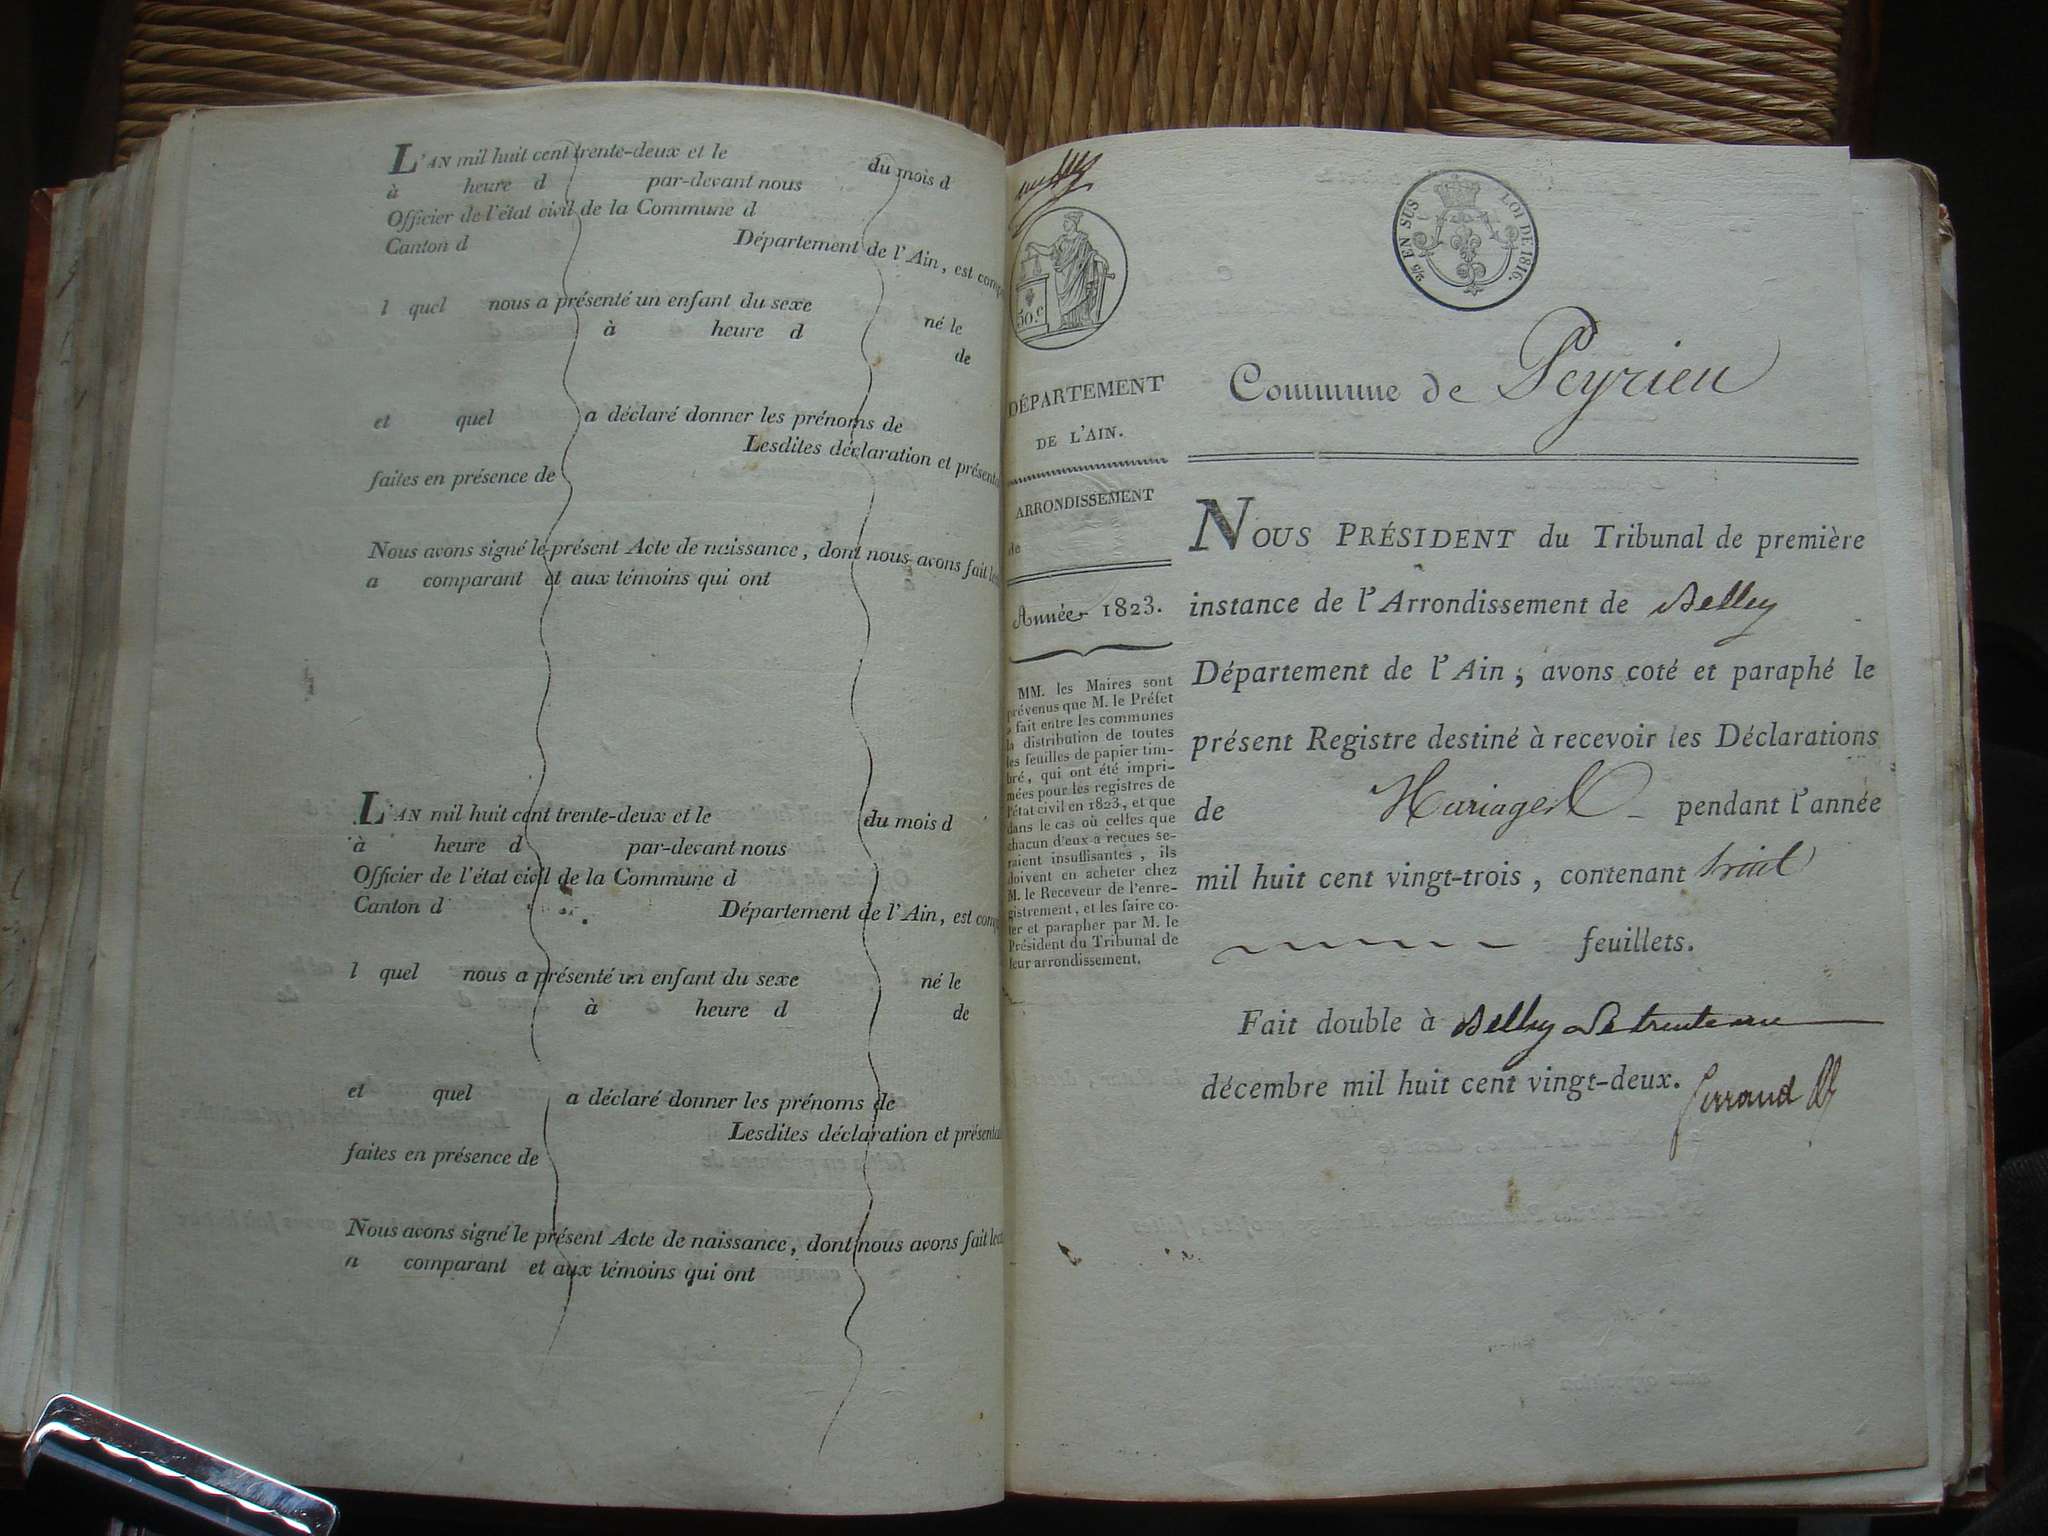 L'AN mil huit cent trente-deux et le du mois d
à heure d par-devant nous
Officier de l'état civil de la Commune d
Canton d Département de l'Ain, est comp
l quel nous a présenté un enfant du sexe né le
à heure d de
et quel a déclaré donner les prénoms de
Lesdites déclaration et présenta
faites en présence de
Nous avons signé le présent Acte de naissance, dont nous avons fait lec
a comparant et aux témoins qui ont
L'AN mil huit cent trente-deux et le du mois d
à heure d par-devant nous
Officier de l'état civil de la Commune d
Canton d Département de l'Ain, est comp
l quel nous a présenté un enfant du sexe né le
à heure d de
et quel a déclaré donner les prénoms de
Lesdites déclaration et présenta
faites en présence de
Nous avons signé le présent Acte de naissance, dont nous avons fait lec
a comparant et aux témoins qui ont
50.c
EN SUS LOI DE 1816.
DÉPARTEMENT
DE L'AIN.
ARRONDISSEMENT
de
Année 1823.
MM. les Maires sont
prévenus que M. le Préfet
a fait entre les communes
la distribution de toutes
les feuilles de papier tim-
bré, qui ont été impri-
mées pour les registres de
l'état civil en 1823, et que
dans le cas où celles que
chacun d'eux a reçues se-
raient insuffisantes, ils
doivent en acheter chez
M. le Receveur de l'enre-
gistrement, et les faire co-
ter et parapher par M. le
Président du Tribunal de
leur arrondissement.
Commune de Peyrieu
NOUS PRÉSIDENT du Tribunal de première
instance de l'Arrondissement de Belley
Département de l'Ain, avons coté et paraphé le
présent Registre destiné à recevoir les Déclarations
de Mariages pendant l'année
mil huit cent vingt-trois, contenant huit
feuillets.
Fait double à Belley le trente un
décembre mil huit cent vingt-deux.